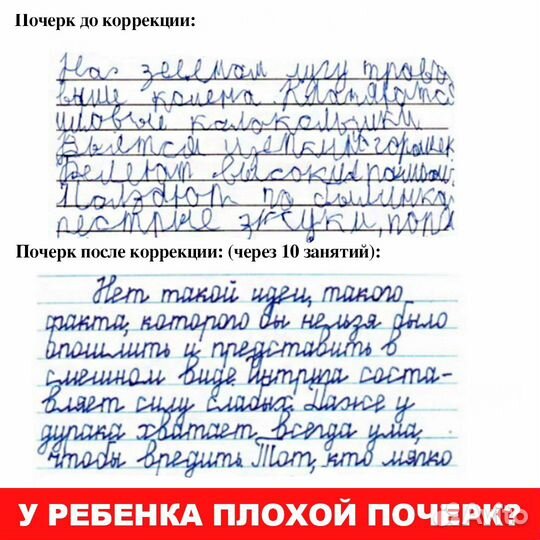 Почерк до коррекции:
На зеленом лугу трава
выше колена. Клонятся
лиловые колокольчики
Вьется цепкий горошек
Белеют высокие ромаш
Ползают по былинка
пестрые жуки, порх
Почерк после коррекции: (через 10 занятий):
Нет такой идеи, такого
факта, которого бы нельзя было
опошлить и представить в
смешном виде. Интрига соста-
вляет силу слабых. Даже у
дурака хватает всегда ума,
чтобы вредить. Тот, кто мягко
У РЕБЕНКА ПЛОХОЙ ПОЧЕРК?
Avito